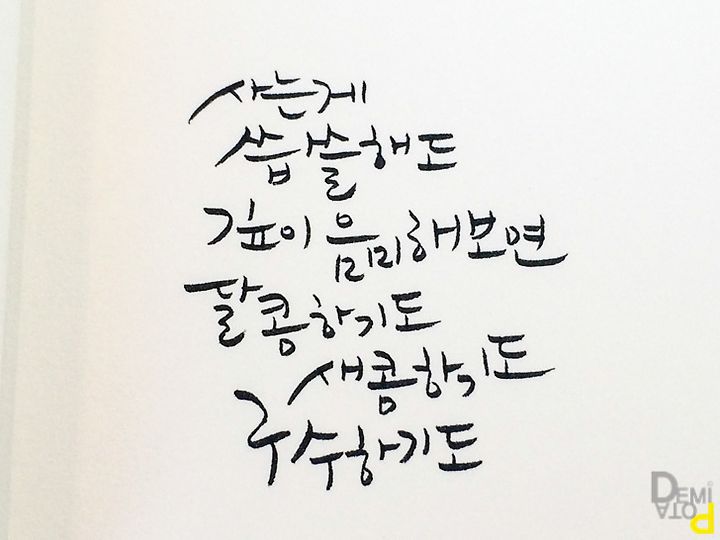 사는게
씁쓸해도
깊이 음미해보면
달콩하기도
새콤하기도
구수하기도
DEMI
POTA